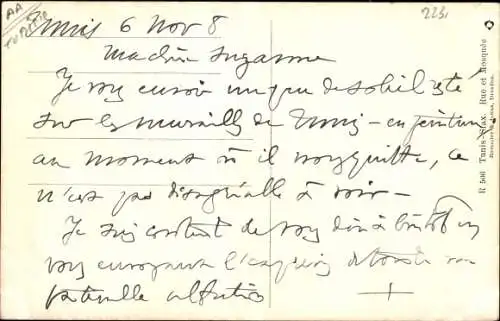 Tunis 6 Nov 8
Ma chère Suzanne
Je vous envoie un peu de soleil resté
sur les murailles de Tunis - en peinture
au moment où il nous quitte, ce
n'est pas désagréable à voir -
Je suis content de vous dire à bientôt en
vous envoyant l'expression de toute ma
paternelle affection
R 506 Tunis-Sfax. Rue et Mosquée
223.
AA